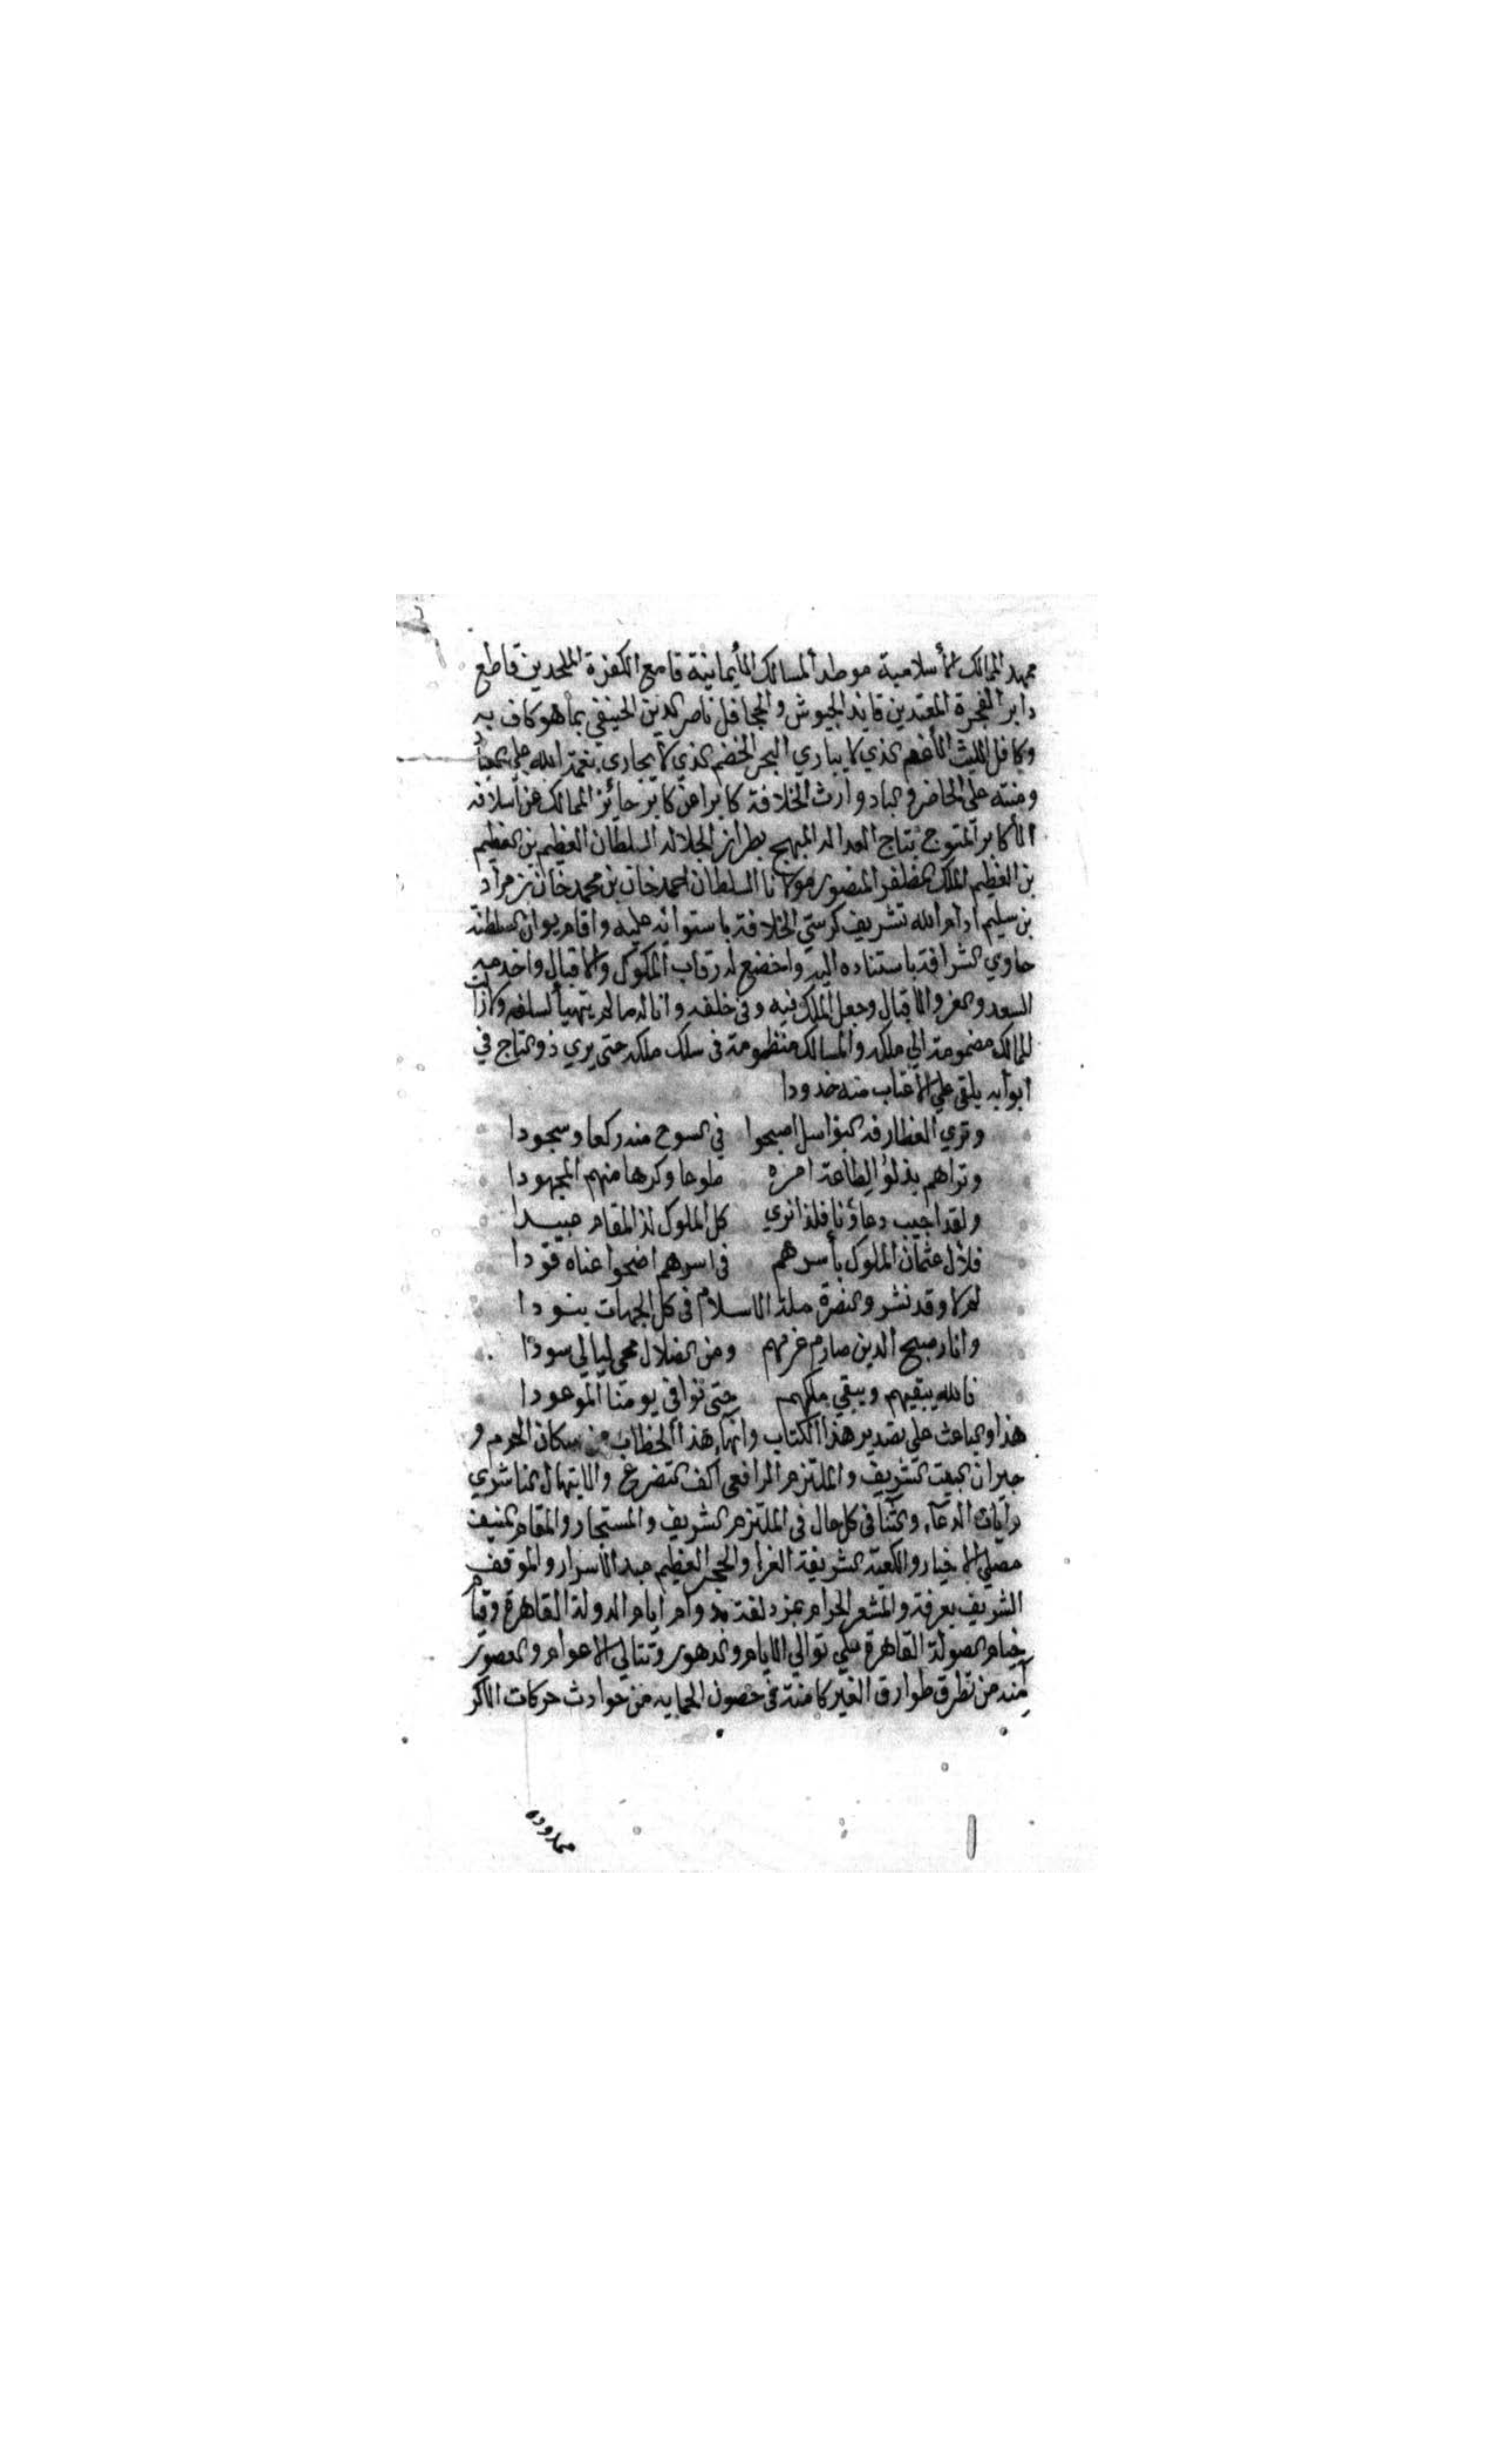 ممهد الممالك الأسلامية موطد المسالك الأيمانية قامع الكفرة الملحدين قاطع
دابر الفجرة المعتدين قايد الجيوش والجحافل ناصر الدين الحنيفي بما هو كاف به
وكافل الليث الذي لا يباري البحر الخضم الذي لا يجاري نعمة الله علي
ومنته علي الحاضر والباد وارث الخلافة كابرا عن كابر حائز الممالك عن أسلافه
الأكابر المتوج بتاج العداله المبهج بطراز الجلاله السلطان العظيم بن العظيم
بن العظيم الملك المظفر المنصور مولانا السلطان احمد خان بن محمد خان بن مراد
بن سليم ادام الله تشريف كرسي الخلافة باستوائه عليه واقام ايوان السلطنة
حاوي الشرافة باستناده اليه واخضع له رقاب الملوك والاقيال واخدمه
السعد والعز والاقبال وجعل الملك فيه وفي خلفه واناله ما لم يتهيأ لسلفه ولازالت
الممالك مضمومة الي ملكه والمسالك منظومة في سلك ملكه حتي يري ذو التاج في
ابوابه يلقي علي الاعتاب منه خدودا
وتري الغطارفه البواسل اصبحوا في السوح منه ركعا وسجودا
وتراهم بذلوا لطاعة امره طوعا وكرها منهم المجهودا
ولقد اجيب دعاؤنا فلذا نري كل الملوك لذا المقام عبيدا
فلآل عثمان الملوك بأسرهم في اسرهم اضحوا عناه قودا
لم لا وقد نشروا لنصرة ملة الاسلام في كل الجهات بنودا
وانار صبح الدين صارم عزمهم ومن الضلال محي ليالي سودا
فالله يبقيهم ويبقي ملكهم حتي نوافي يومنا الموعودا
هذا والباعث علي تصدير هذا الكتاب وانهاء هذا الخطاب من سكان الحرم و
جيران البيت الشريف والملتزم الرافعي اكف التضرع والابتهال الناشري
رايات الدعاء والثنا في كل حال في الملتزم الشريف والمستجار والمقام المنيف
مصلي الاخيار والكعبة الشريفة الغرا والحجر العظيم الاسرار والموقف
الشريف بعرفة والمشعر الحرام بمزدلفة بدوام ايام الدولة القاهرة وقيام
خيام الصولة القاهرة علي توالي الايام والدهور وتتالي الاعوام والعصور
آمنة من تطرق طوارق الغير كامنة في حصون الحمايه من حوادث حركات الاكر
ممدوده